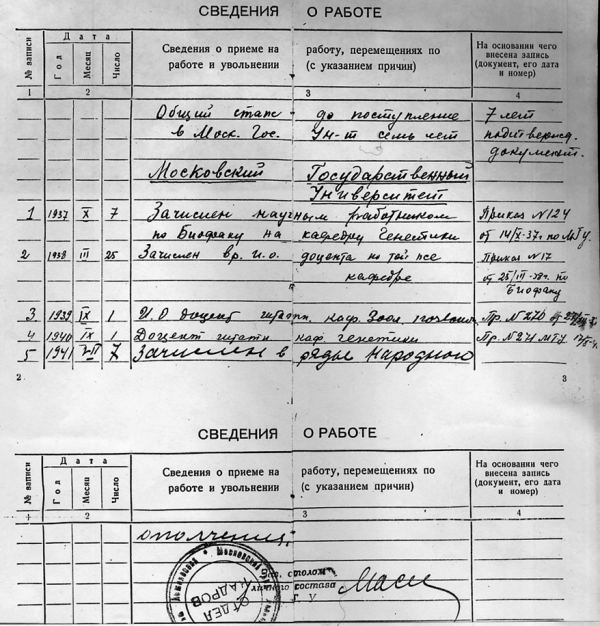 СВЕДЕНИЯ О РАБОТЕ
№ записи
Дата
Год
Месяц
Число
Сведения о приеме на работу, перемещениях по
работе и увольнении (с указанием причин)
На основании чего
внесена запись
(документ, его дата
и номер)
1 2 3 4
Общий стаж до поступление 7 лет
в Моск. Гос. Ун-т семь лет подтвержд.
документ.
Московский Государственный
Университет
1 1937 X 7 Зачислен научным работником Приказ №124
по Биофаку на кафедру Генетики от 14/X-37г. по МГУ.
2 1938 III 25 Зачислен вр. и.о. доцента по той же Приказ №17
кафедре от 25/III-38г. по
Биофаку
3 1939 IX 1 И.О доцент штатн. каф. Зоол. Пр. №270 от
4 1940 IX 1 Доцент штатн каф. генетики Пр. №271 МГУ
5 1941 VII 7 Зачислен в ряды Народного
2 3
СВЕДЕНИЯ О РАБОТЕ
№ записи
Дата
Год
Месяц
Число
Сведения о приеме на работу, перемещениях по
работе и увольнении (с указанием причин)
На основании чего
внесена запись
(документ, его дата
и номер)
2 3 4
ополчения.
Московский
ОТДЕЛ
КАДРОВ
столом
личного состава
Г У